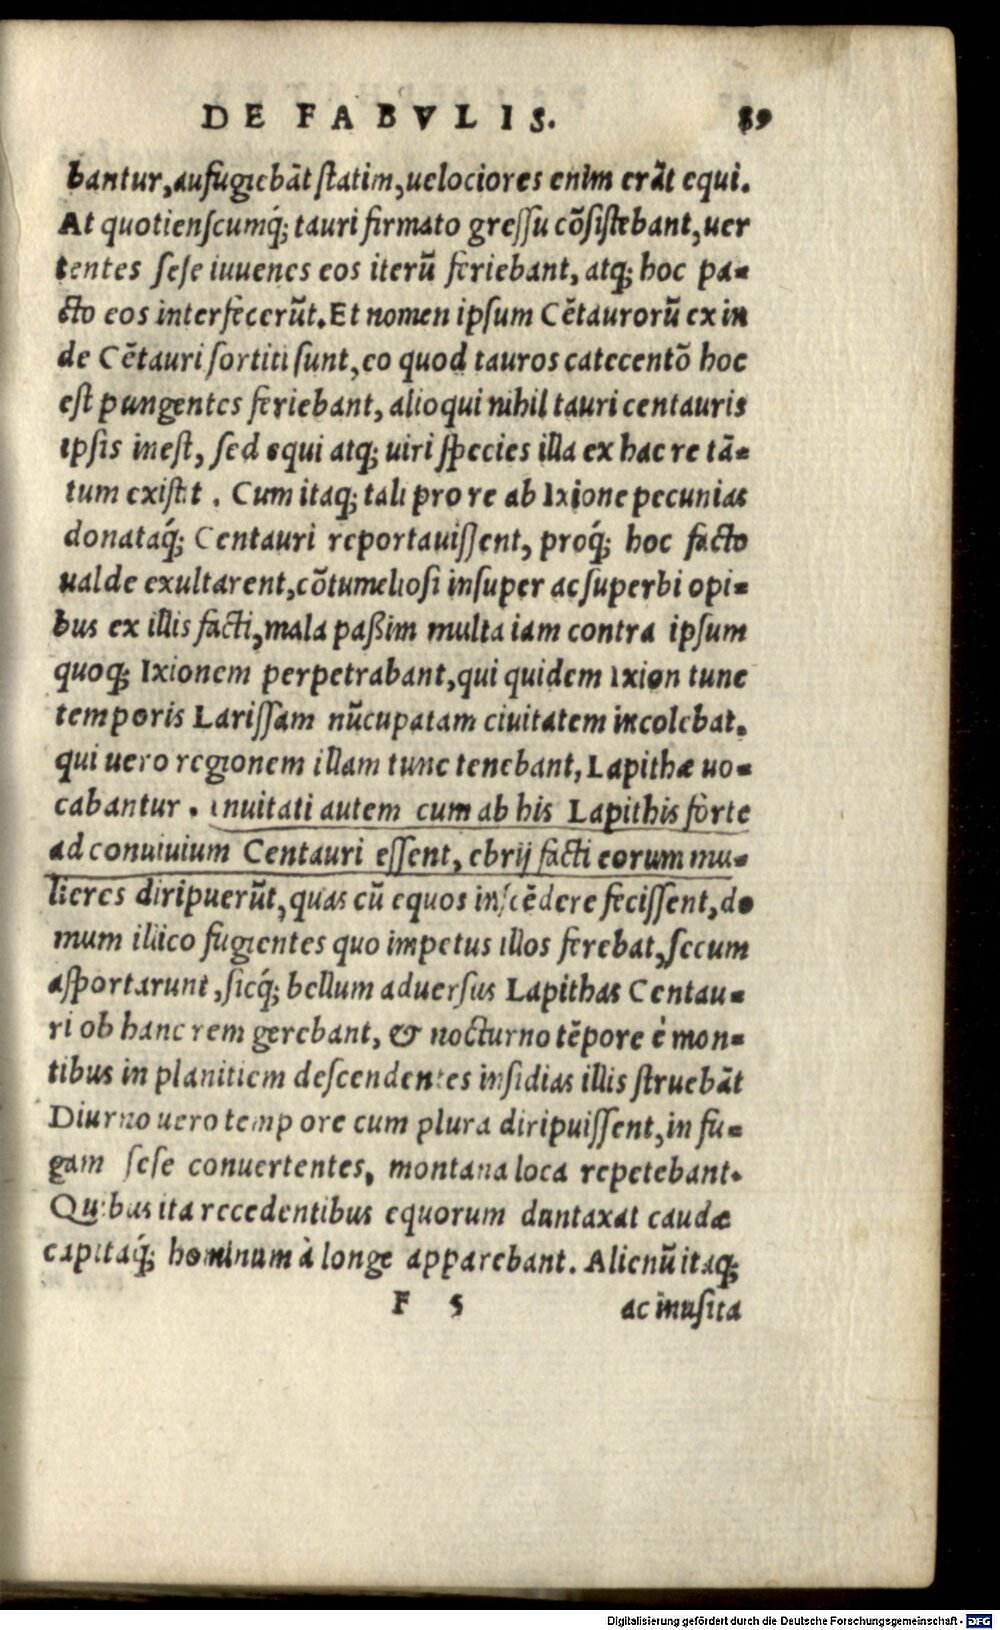 DE FABVLIS. 89
bantur, aufugiebãt ſtatim, uelociores enim erãt equi.
At quotienſcumq́; tauri firmato greſſu cõſiſtebant, uer
tentes ſeſe iuuenes eos iterũ feriebant, atq; hoc pa-
cto eos interfecerũt. Et nomen ipſum Cẽtaurorũ ex in
de Cẽtauri ſortiti ſunt, eo quod tauros catecentõ hoc
eſt pungentes feriebant, alioqui nihil tauri centauris
ipſis ineſt, ſed equi atq; uiri ſpecies illa ex hac re tã-
tum exiſtit. Cum itaq; tali pro re ab Ixione pecunias
donataq́; Centauri reportauiſſent, proq́; hoc facto
ualde exultarent, cõtumelioſi inſuper ac ſuperbi opi-
bus ex illis facti, mala paßim multa iam contra ipſum
quoq; Ixionem perpetrabant, qui quidem Ixion tunc
temporis Lariſſam nũcupatam ciuitatem incolebat.
qui uero regionem illam tunc tenebant, Lapithæ uo-
cabantur. inuitati autem cum ab his Lapithis forte
ad conuiuium Centauri eſſent, ebrij facti eorum mu-
lieres diripuerũt, quas cũ equos inſcẽdere feciſſent, do
mum illico fugientes quo impetus illos ferebat, ſecum
aſportarunt, ſicq́; bellum aduerſus Lapithas Centau-
ri ob hanc rem gerebant, & nocturno tẽpore è mon-
tibus in planitiem deſcendentes inſidias illis ſtruebãt
Diurno uero temp ore cum plura diripuiſſent, in fu-
gam ſeſe conuertentes, montana loca repetebant.
Quibus ita recedentibus equorum duntaxat caudæ
capitaq́; hominum à longe apparebant. Alienũ itaq;
F 5 ac inuſita
Digitalisierung gefördert durch die Deutsche Forschungsgemeinschaft - DFG